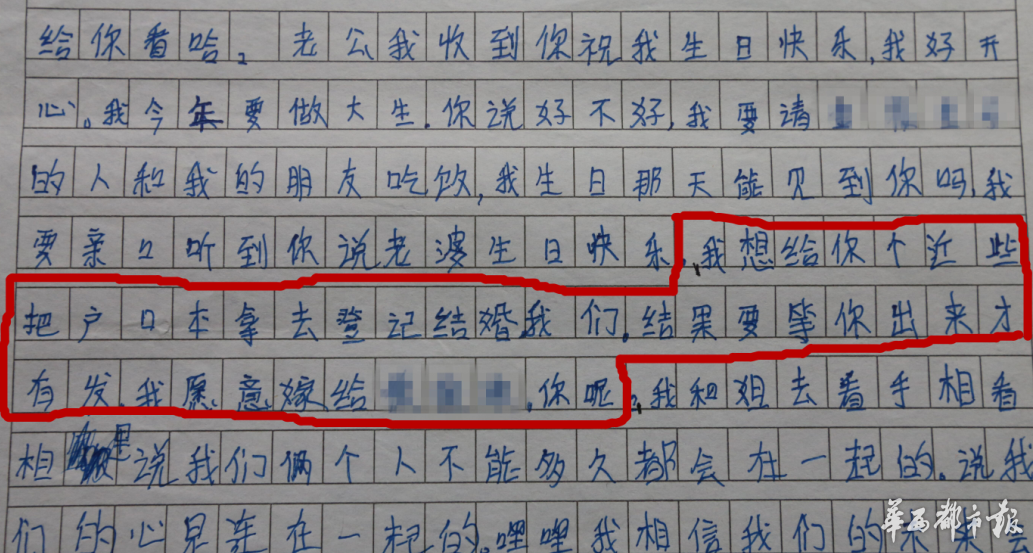 给你看哈。老公我收到你祝我生日快乐,我好开
心。我今年要做大生.你说好不好,我要请
的人和我的朋友吃饭,我生日那天能见到你吗,我
要亲口听到你说老婆生日快乐,我想给你个近些
把户口本拿去登记结婚,我们.结果要等你出来才
有发.我愿意嫁给,你呢,我和姐去看手相看
相里说我们俩个人不能多久都会在一起的.说我
们的心是连在一起的.哩哩我相信我们的
华西都市报